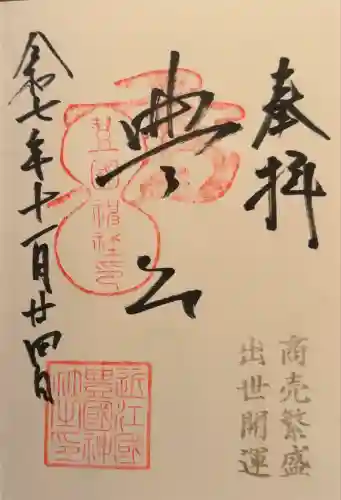 奉拝
商売繁盛
出世開運
豊公
豊国神社印
令和七年十一月廿四日
近江国
豊国神
社之印